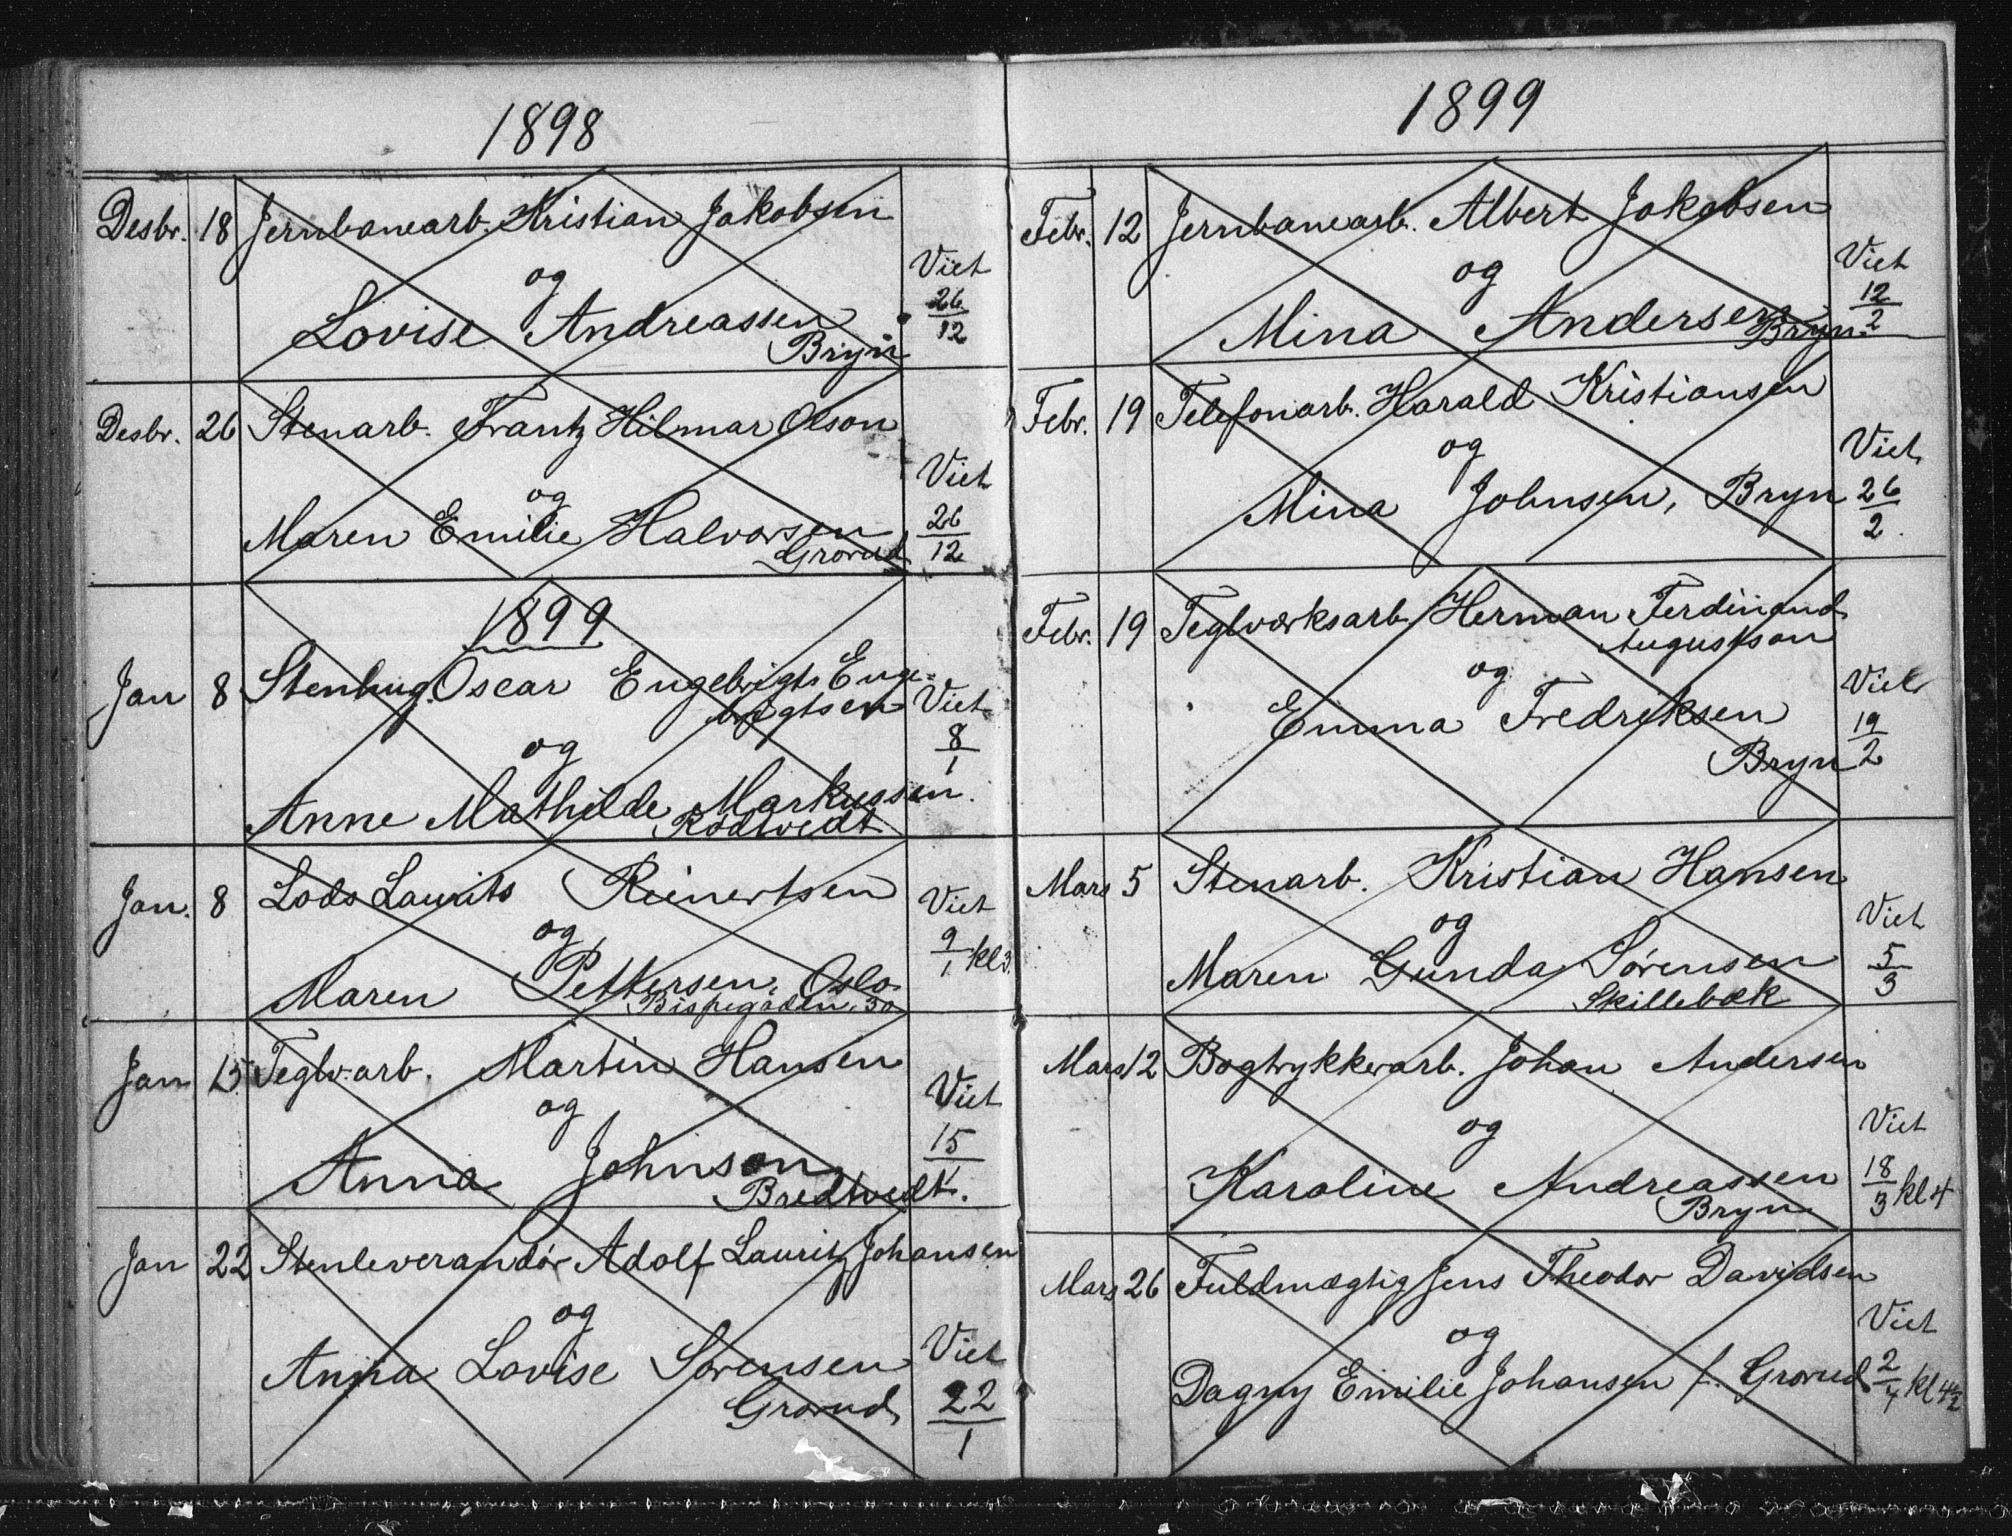 1898
Desbr. 18 Jernbanearb. Kristian Jakobsen
og
Lovise Andreassen
Bryn
Viet 26/12
Desbr. 26 Stenarb. Frantz Hilmar Olson
og
Maren Emilie Halvorsen
Grorud
Viet 26/12
1899
Jan 8 Stenhug. Oscar Engebrigt Enge=
brigtsen
og
Anne Mathilde Markussen.
Rødtvedt
Viet 8/1
Jan. 8 Lods Laurits Reinertsen
og
Maren Pettersen, Oslo
Bispegaden, 30
Viet 9/1 kl 3.
Jan 15 Teglv. arb. Martin Hansen
og
Anna Johnson
Bredtvedt.
Viet 15/1
Jan 22 Stenleverandør Adolf Lauritz Johansen
og
Anna Lovise Sørensen
Grorud
Viet 22/1
1899
Febr. 12 Jernbanearb. Albert Jakobsen
og
Mina Andersen
Bryn.
Viet 12/2
Febr. 19 Telefonarb. Harald Kristiansen
og
Mina Johnsen, Bryn
Viet 26/2.
Febr. 19 Teglværksarb. Herman Ferdinand
Augustson
og
Emma Fredriksen
Bryn
Viet 19/2
Mars 5 Stenarb. Kristian Hansen
og
Maren Gunda Sørensen
Skillebæk
Viet 5/3
Mars 12 Bogtrykkerarb. Johan Andersen
og
Karoline Andreassen
Bryn
Viet 18/3 kl 4
Mars 26 Fuldmægtig Jens Theodor Davidsen
og
Dagny Emilie Johansen f. Grorud
Viet 2/4 kl 4½